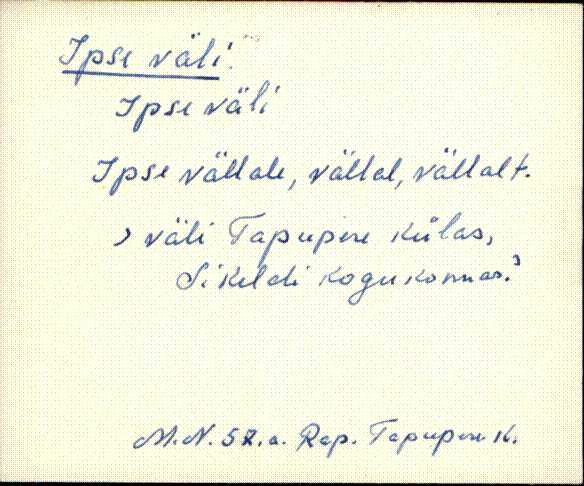 Ipse väli.
Ipse väli
Ipse vällale, vällal, vällalt.
› väli Tapupere külas,
Sikeldi kogukonnas.›
M.N. 57.a. Rap. Tapupere k.